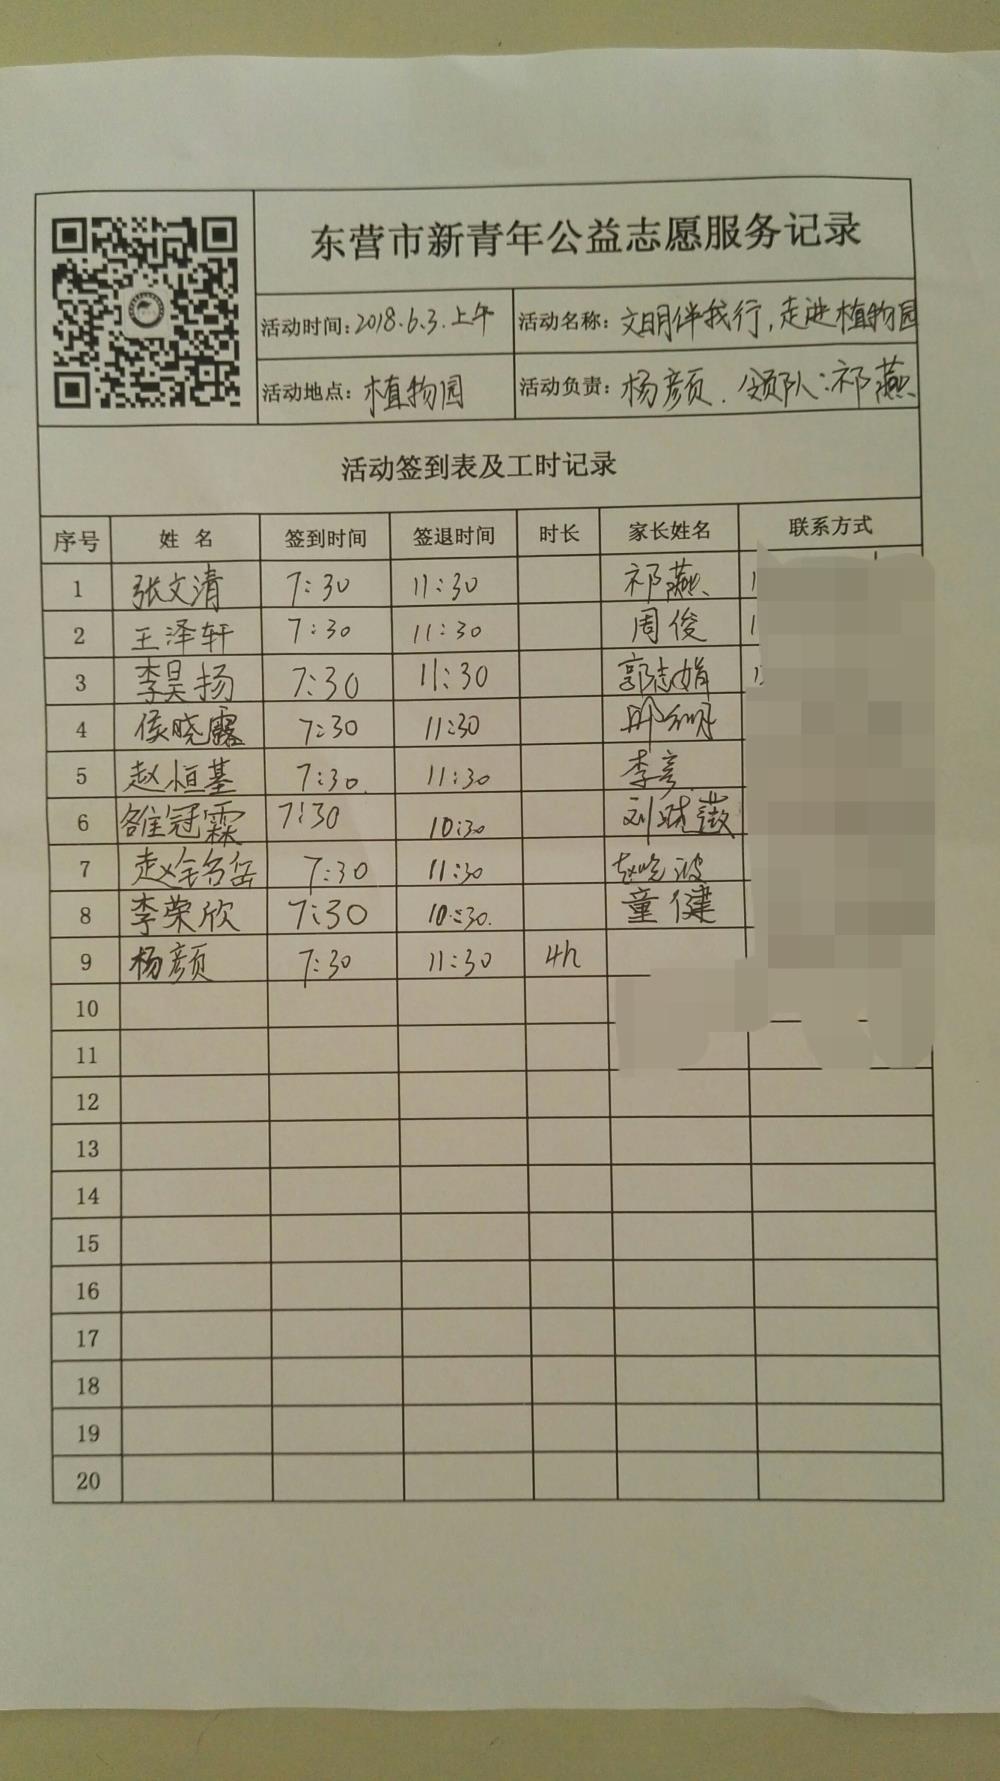 东营市新青年公益志愿服务记录
活动时间:2018.6.3.上午 活动名称:文明伴我行,走进植物园
活动地点:植物园 活动负责:杨彦页. 领队:祁燕
活动签到表及工时记录
序号 姓 名 签到时间 签退时间 时长 家长姓名 联系方式
1 张文清 7:30 11:30 祁燕
2 王泽轩 7:30 11:30 周俊
3 李昊扬 7:30 11:30 郭志娟
4 侯晓露 7:30 11:30
5 赵恒基 7:30. 11:30 李彦
6 雒冠霖 7:30 10:30
7 7:30 11:30 赵晓波
8 李荣欣 7:30 10:30. 童健
9 7:30 11:30 4h
10
11
12
13
14
15
16
17
18
19
20